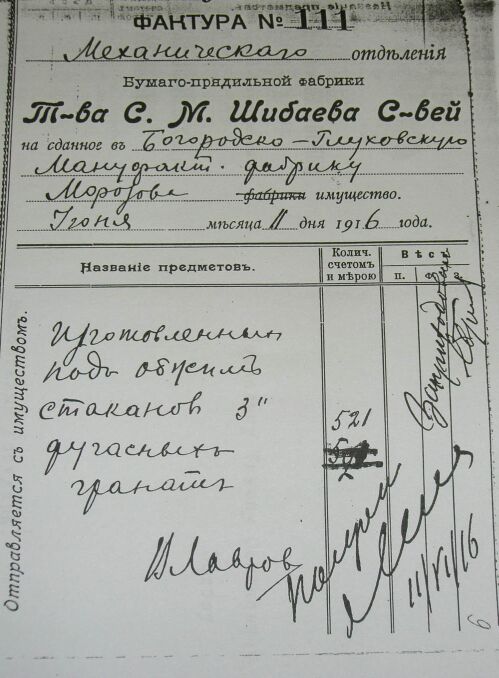 ФАКТУРА № 111
Механическаго отдѣленія
Бумаго-прядильной фабрики
Т-ва С. М. Шибаева С-вей
на сданное въ Богородско-Глуховскую
Мануфакт. фабрику
Морозова фабрики имущество.
Іюня мѣсяца 11 дня 1916 года.
Названіе предметовъ.
Колич. счетомъ и мѣрою
Вѣсъ
п. Ф.
Изготовленныхъ
подъ
стаканов 3"
521
фугасныхъ
гранатъ
Лавров
11/VI/16
6
Отправляется съ имуществомъ.